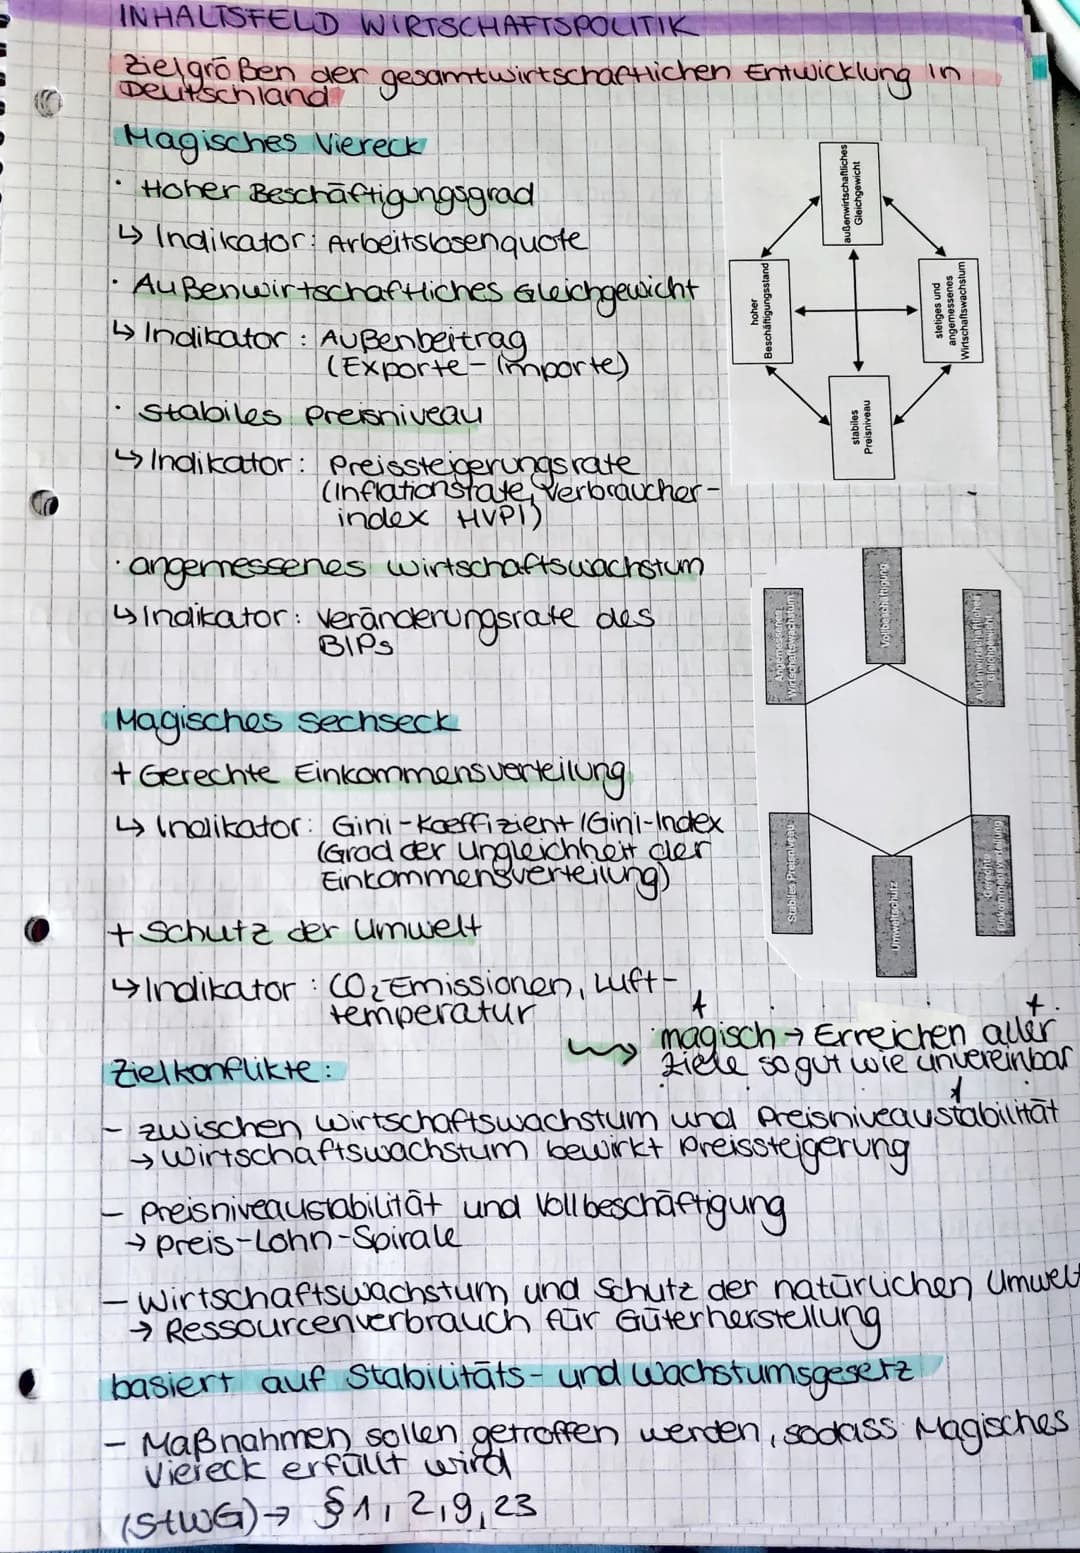 INHALTSFELD WIRTSCHAFTSPOLITIK
Zielgrößen der gesamtwirtschaftlichen Entwicklung in
Deutschland
Magisches Viereck
· Hoher Beschäftigungsgrad
↳ Indikator: Arbeitslosenquote
· Außenwirtschaftliches Gleichgewicht
↳ Indikator: Außenbeitrag
(Exporte - Importe)
· stabiles Preisniveau
↳ Indikator: Preissteigerungsrate
(Inflationsrate, Verbraucher-
index HVPI)
· angemessenes Wirtschaftswachstum
↳ Indikator: Veränderungsrate des
BIPs
außenwirtschaftliches
Gleichgewicht
hoher
Beschäftigungsstand
stetiges und
angemessenes
Wirtschaftswachstum
stabiles
Preisniveau
Magisches Sechseck
+ Gerechte Einkommensverteilung
↳ Indikator: Gini-Koeffizient/Gini-Index
(Grad der Ungleichheit der
Einkommensverteilung)
+ Schutz der Umwelt
↳ Indikator: CO₂-Emissionen, Luft-
temperatur
Angemessenes
Wirtschaftswachstum
Vollbeschäftigung
Außenwirtschaftliches
Gleichgewicht
Stabiles Preisniveau
Umweltschutz
Gerechte
Einkommensverteilung
magisch → Erreichen aller
Ziele so gut wie unvereinbar
Zielkonflikte:
- zwischen Wirtschaftswachstum und Preisniveaustabilität
→ Wirtschaftswachstum bewirkt Preissteigerung
- Preisniveaustabilität und Vollbeschäftigung
→ Preis-Lohn-Spirale
- Wirtschaftswachstum und Schutz der natürlichen Umwelt
→ Ressourcenverbrauch für Güterherstellung
basiert auf Stabilitäts- und Wachstumsgesetz
- Maßnahmen sollen getroffen werden, sodass Magisches
Viereck erfüllt wird
(StWG) → § 1, 2, 9, 23